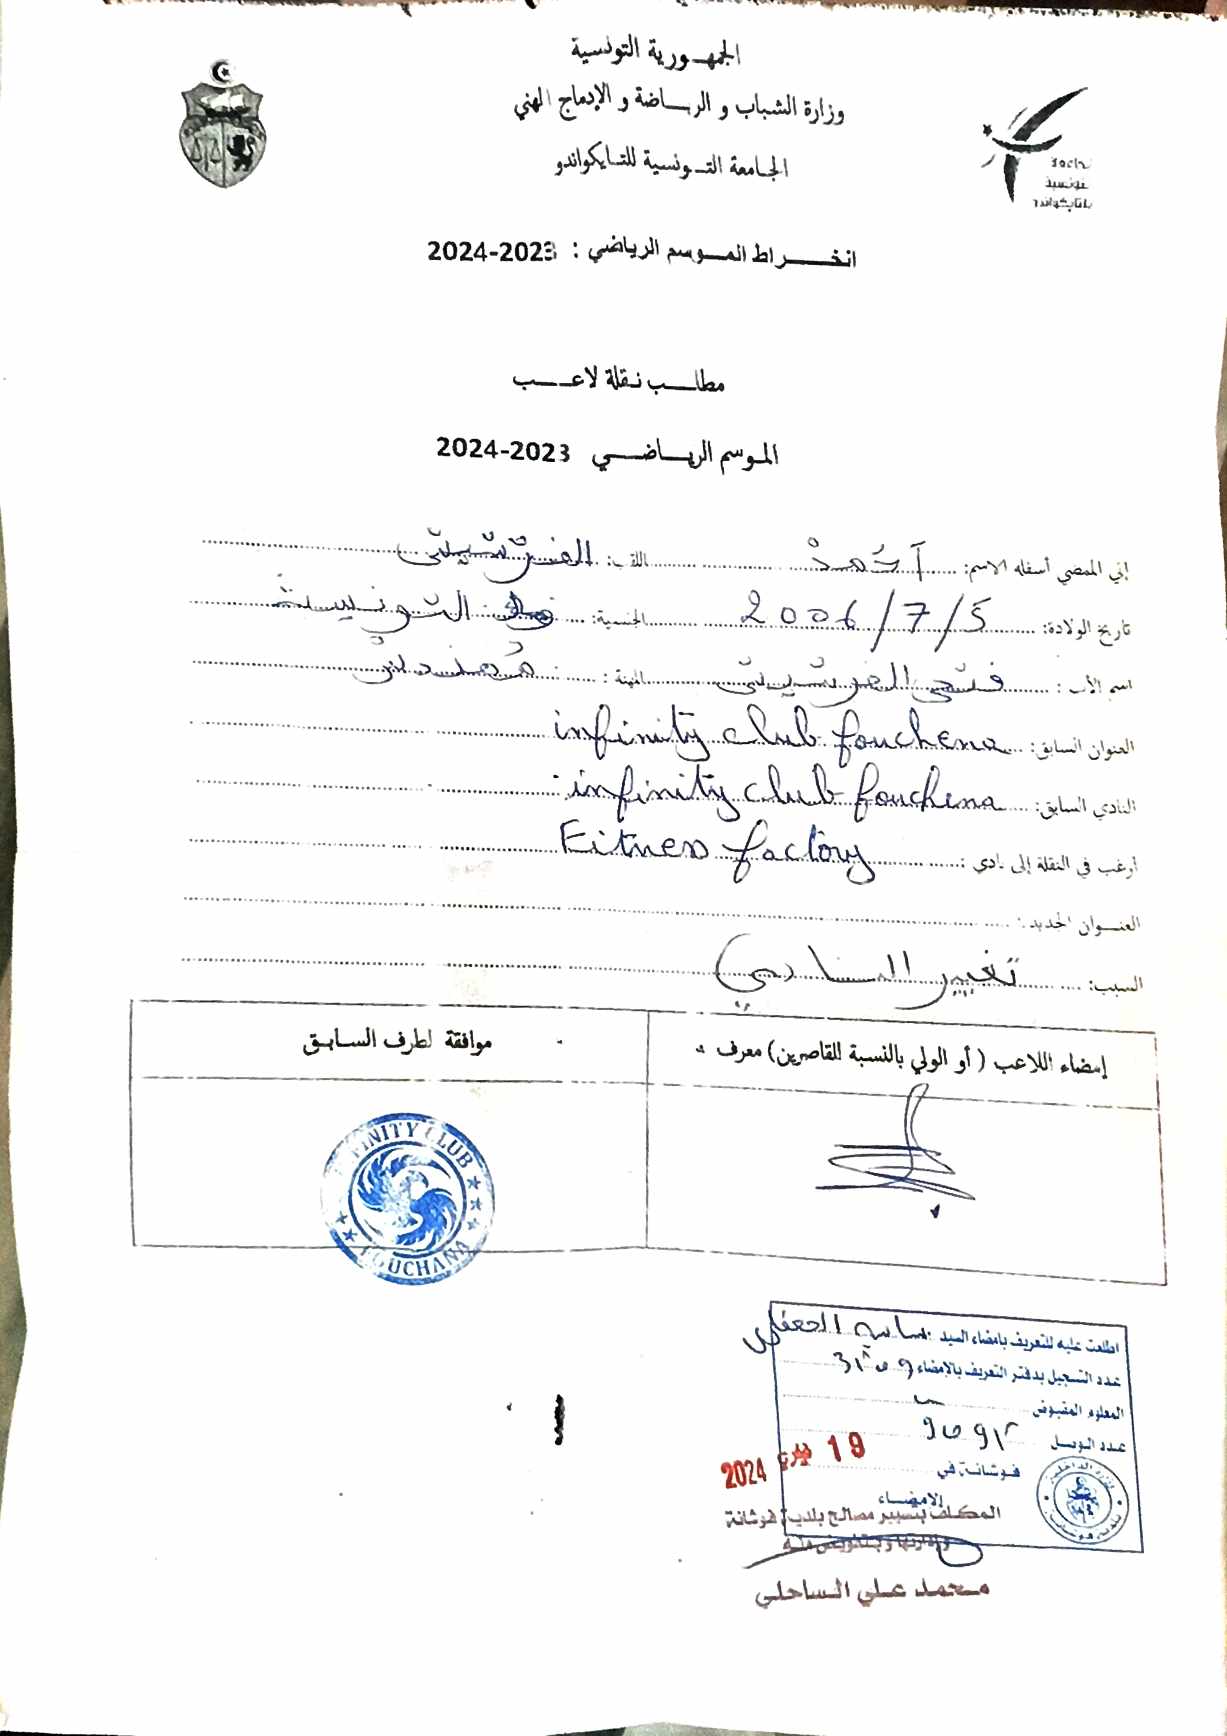 الجمهورية التونسية
وزارة الشباب و الرياضة و الإدماج المهني
الجامعة التونسية للتايكواندو
تونسية
للتايكواندو
انخراط الموسم الرياضي : 2023-2024
مطلب نقلة لاعب
الموسم الرياضي 2023-2024
إني الممضي أسفله الاسم: أحمد اللقب: الفرشيشي
تاريخ الولادة: 2006/7/5 الجنسية: التونيسية
اسم الأب: فتحي الفرشيشي المهنة:
العنوان السابق: infinity club fouchena
النادي السابق: infinity club fouchena
أرغب في النقلة إلى نادي: Fitness factory
العنوان الجديد:
السبب: تغيير النادي
إمضاء اللاعب (أو الولي بالنسبة للقاصرين) معرف به
موافقة الطرف السابق
INFINITY CLUB
FOUCHANA
اطلعت عليه للتعريف بإمضاء السيد:
عدد التسجيل بدفتر التعريف بالإمضاء
المعلوم المقبوض
عدد الوصل
فوشانة في 19 فيفري 2024
الإمضاء
المكلف بتسيير مصالح بلدية فوشانة
وإدارتها وبتفويض منه
محمد علي الساحلي